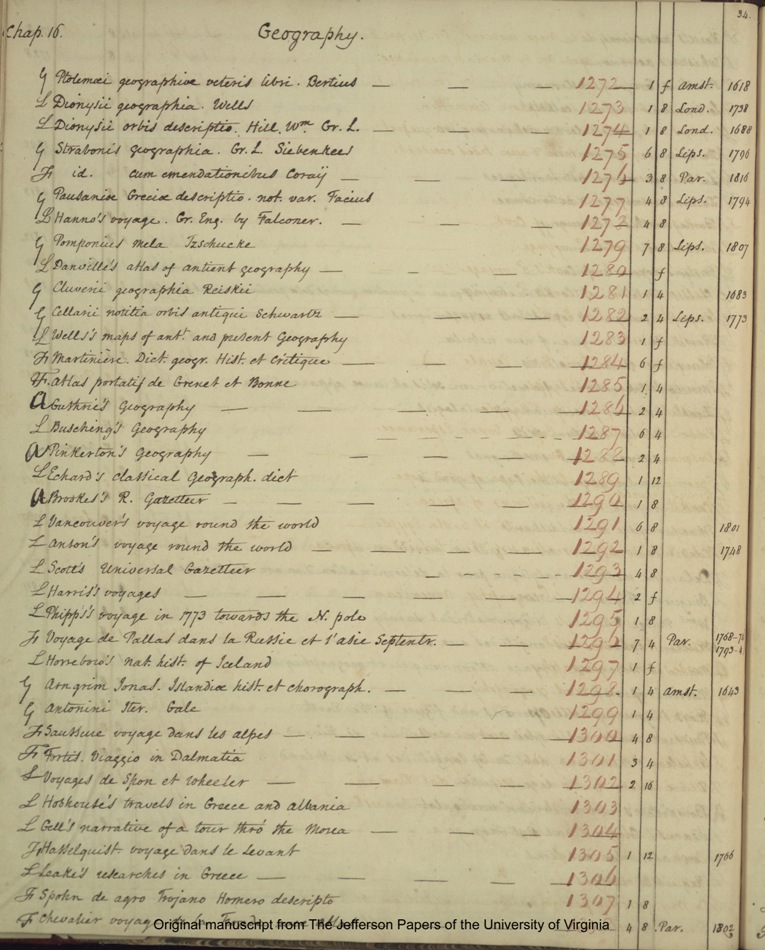 34.
Chap. 16. Geography.
G Ptolemæi geographiae veteris libri. Bertius — 1272 1 f Amst. 1618
L Dionysii geographia. Wells 1273 1 8 Lond. 1738
L Dionysii orbis descriptio. Hill, Wm. Gr. L. — 1274 1 8 Lond. 1688
G Strabonis geographia. Gr. L. Siebenkees 1275 6 8 Lips. 1796
F id. cum emendationibus Coraÿ — 1276 3 8 Par. 1816
G Pausaniæ Greciæ descriptio. not. var. Facius 1277 4 8 Lips. 1794
L Hanno's voyage. Gr. Eng. by Falconer. — 1278 4 8
G Pomponius Mela Tzschucke 1279 7 8 Lips. 1807
L Danville's atlas of antient geography — 1280 f
G Cluverii geographia Reiskii 1281 1 4 1683
G Cellarii notitia orbis antiquæ Schwartz — 1282 2 4 Lips. 1773
L Wells's maps of ant. and present Geography 1283 1 f
F Martiniere. Dict. geogr. Hist. et Critique — 1284 6 f
F Atlas portatif de Grenet et Bonne 1285 1 4
a Guthrie's Geography — 1286 2 4
L Busching's Geography 1287 6 4
a Pinkerton's geography — 1288 2 4
L Echard's classical Geograph. dict 1289 1 12
a Brookes's R. Gazetteer — 1290 1 8
L Vancouver's voyage round the world 1291 6 8 1801
L Anson's voyage round the world — 1292 1 8 1748
L Scott's Universal Gazetteer 1293 4 8
L Harris's voyages — 1294 2 f
L Phipps's voyage in 1773 towards the N. pole 1295 1 8
F Voyage de Pallas dans la Russie et l'asie Septentr. — 1296 7 4 Par.
L Horrebow's nat. hist. of Iceland 1297 1 f
G Arngrim Jonas. Islandiæ hist. et chorograph. — 1298 1 4 Amst. 1643
G Antonini Iter. Gale 1299 1 4
F Saussure voyage dans les alpes — 1300 4 8
F Fortis. Viaggio in Dalmatia 1301 3 4
L Voyages de Spon et Wheeler — 1302 2 16
L Hobhouse's travels in Greece and Albania 1303
L Gell's narrative of a tour thro' the Morea — 1304
F Hasselquist. voyage dans le Levant 1305 1 12 1766
L Leake's researches in Greece — 1306
F Spohn de agro Trojano Homero descripto 1307 1 8
F Chevalier voyage de la 4 8 Par. 1802
Original manuscript from The Jefferson Papers of the University of Virginia